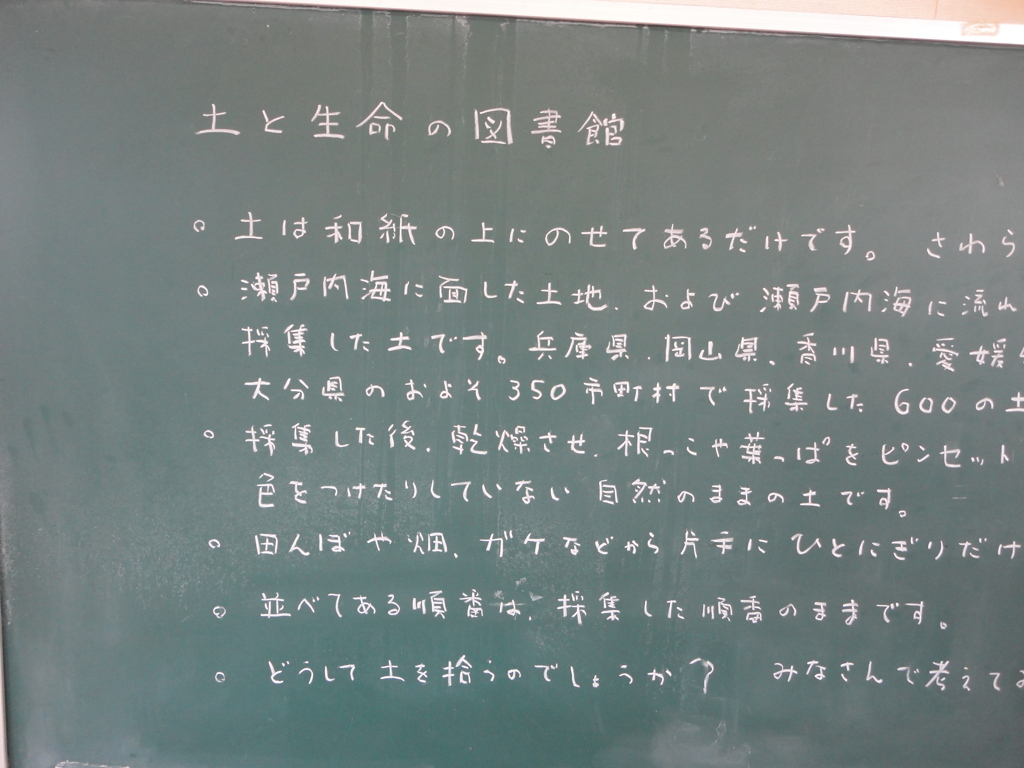 土と生命の図書館
○ 土は和紙の上にのせてあるだけです。 さわら
○ 瀬戸内海に面した土地、および瀬戸内海に流れ
採集した土です。兵庫県、岡山県、香川県、愛媛
大分県のおよそ350市町村で採集した600の土
○ 採集した後、乾燥させ、根っこや葉っぱをピンセット
色をつけたりしていない自然のままの土です。
○ 田んぼや畑、ガケなどから片手にひとにぎりだけ
○ 並べてある順番は、採集した順番のままです。
○ どうして土を拾うのでしょうか? みなさんで考えて